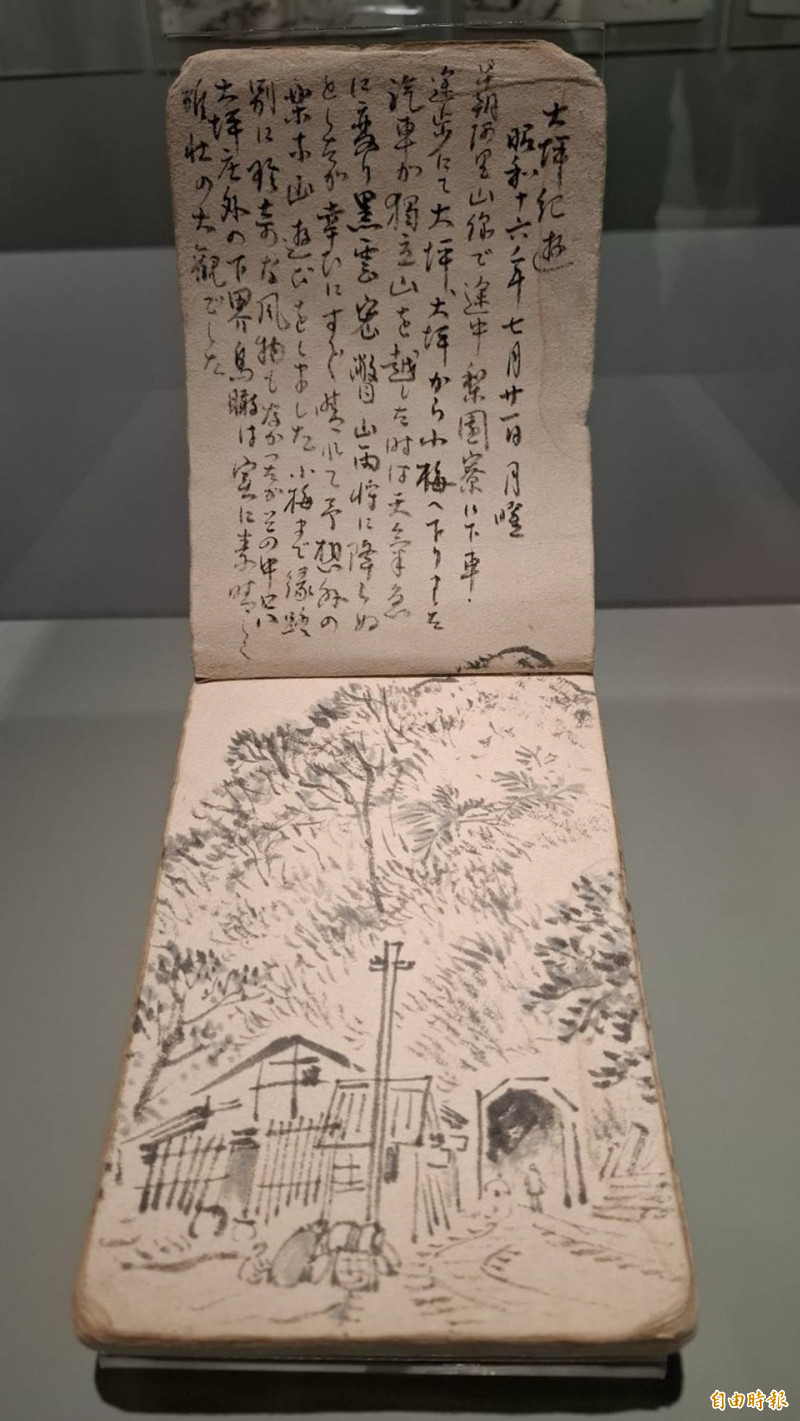 大坪紀遊
昭和十六年七月廿一日月曜
早朝阿里山線で途中梨園寮に下車.
途歩にて大坪、大坪から小梅へ下りました
汽車が獨立山を越した時は天氣急
に変り黒雲密蔽山雨将に降らぬ
としたが幸ひにすぐ晴れて予想外の
楽な山遊びをしました小梅まで
別に珍奇な風物もなかったがその中
大坪庄外の下界鳥瞰は実に素晴しく
雄壮の大観でした
自由時報